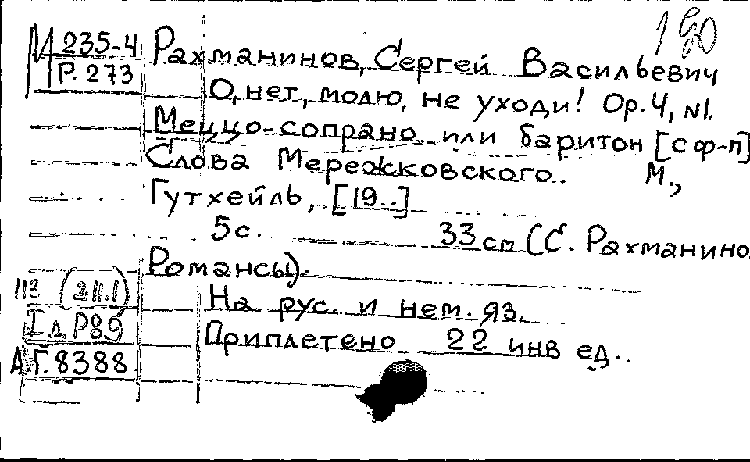 190
М 235-4
Р. 273
Рахманинов, Сергей Васильевич
О, нет, молю, не уходи! Op. 4, N1.
Меццо-сопрано или баритон [с ф-п]
Слова Мережковского. М.,
Гутхейль, [19..]
5с. 33 см (С. Рахманино
Романсы).
На рус. и нем. яз.
Приплетено 22 инв ед..
Р89
Г. 8388